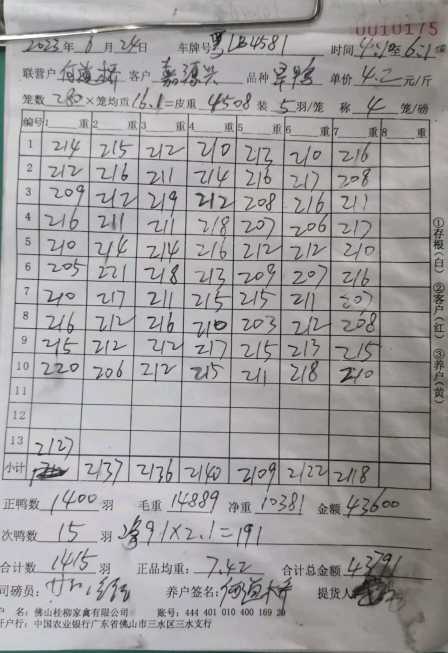 0010175
2023年6月24日 车牌号 LB4581 时间 4:1至6:1
联营户 何 客户 嘉源兴 品种 单价 4.2元/斤
笼数 280×笼均重 16.1=皮重 4508 装 5 羽/笼 称 4 笼/磅
编号 1 重 2 重 3 重 4 重 5 重 6 重 7 重 8 重
1 214 215 212 210 213 210 216
2 212 216 211 214 216 217 208
3 209 212 219 212 208 216 211
4 216 211 211 218 207 206 217
5 210 214 214 216 212 212 210
6 205 221 218 213 209 207 216
7 210 217 211 215 215 211 207
8 216 212 216 210 203 212 208
9 215 212 212 217 215 213 215
10 220 206 212 215 211 218 210
11
12
13 2127
小计 2137 2136 2140 2109 2122 2118
正鸭数 1400 羽 毛重 14889 净重 10381 金额 43600
次鸭数 15 羽 91×2.1=191
合计数 1415 羽 正品均重: 7.42 合计总金额 43791
司磅员: 养户签名: 何 提货人
户 名: 佛山桂柳家禽有限公司 账号: 444 401 010 400 169 29
开户行: 中国农业银行广东省佛山市三水区三水支行
①存根(白) ②客户(红) ③养户(黄)